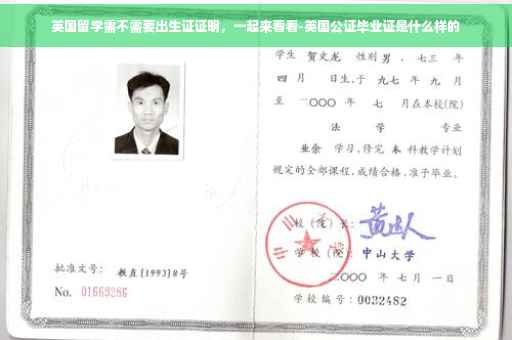 英国留学需不需要出生证证明，一起来看看-英国公证毕业证是什么样的
学生 贺文龙 性别 男，七三 年
四 月 日生，于 九七 年 九 月
至 二〇〇〇 年 七 月在本校(院)
法 学 专业
业余 学习，修完 本 科教学计划
规定的全部课程，成绩合格，准予毕业。
校（院）长：
学校（院）：中山大学
批准文号：教直[1993]8号
二〇〇〇 年 七 月 一 日
No. 01669286
学校编号：0032482